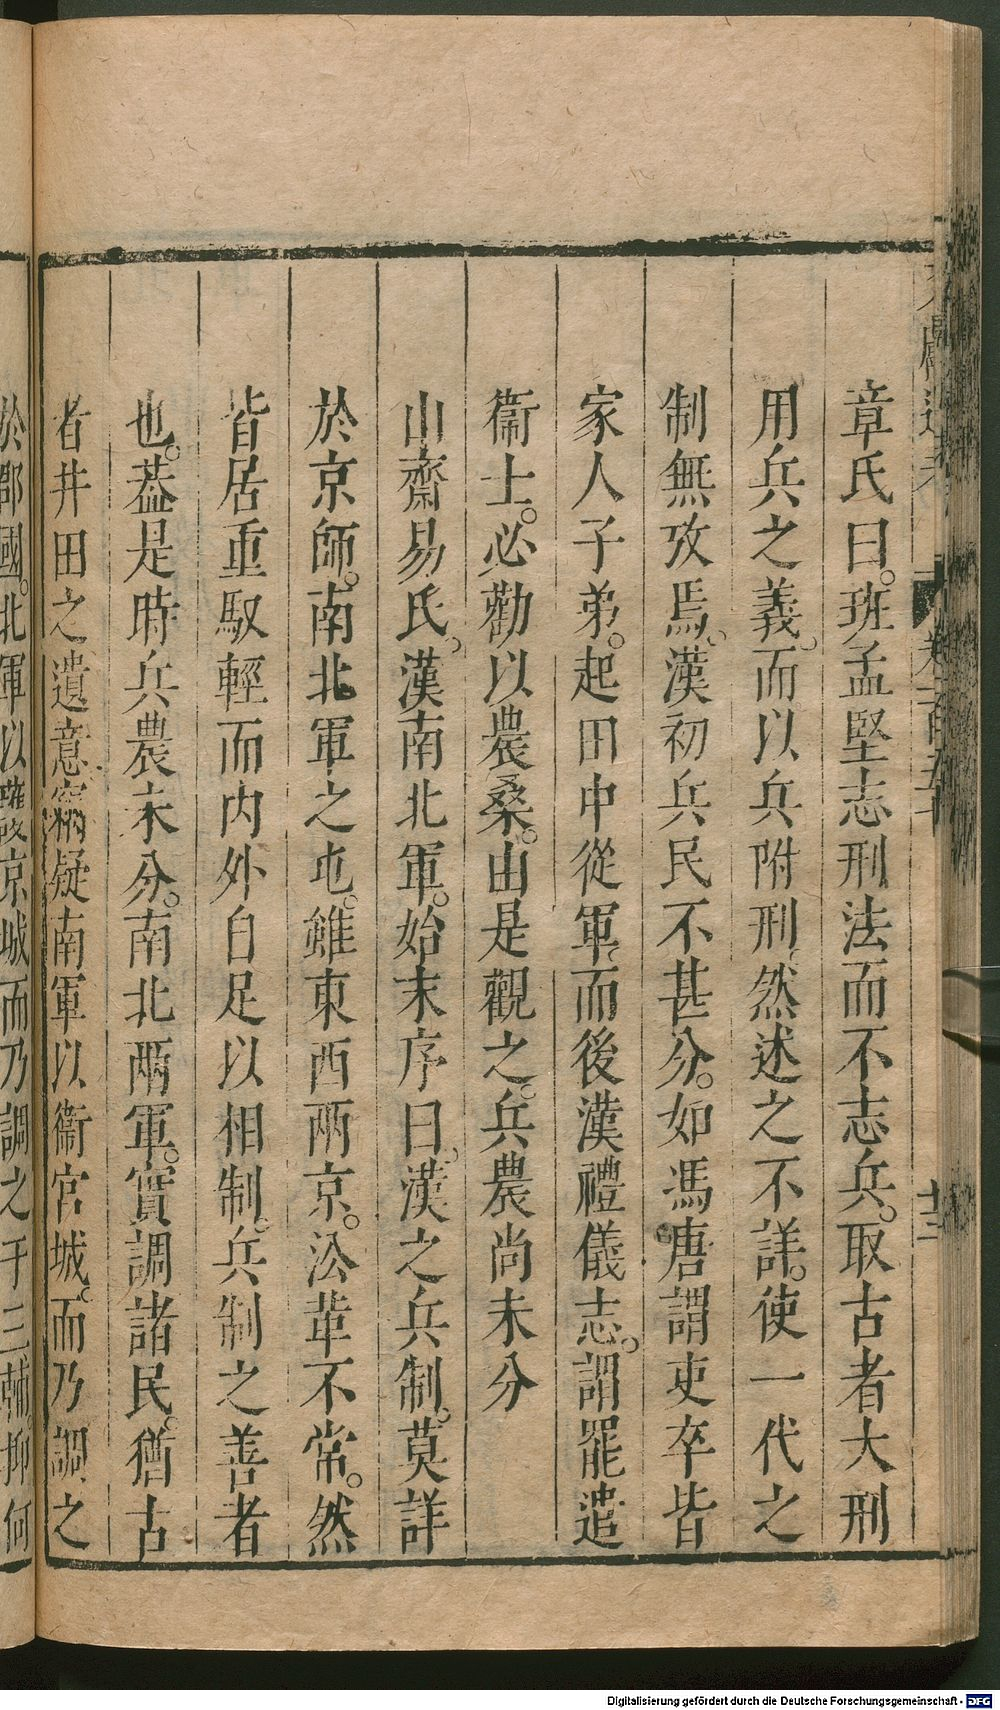 章氏曰。班孟堅志刑法而不志兵。取古者大刑
用兵之義。而以兵附刑。然述之不詳。使一代之
制無攷焉。漢初兵民不甚分。如馮唐謂吏卒皆
家人子弟。起田中從軍。而後漢禮儀志。謂罷遣
衞士。必勸以農桑。由是觀之。兵農尚未分
山齋易氏。漢南北軍。始末序曰。漢之兵制。莫詳
於京師。南北軍之屯。雖東西兩京。㳂革不常。然
皆居重馭輕而内外自足以相制。兵制之善者
也。葢是時兵農未分。南北兩軍。實調諸民。猶古
者井田之遺意。竊疑南軍以衞宮城。而乃調之
於郡國。北軍以護京城而乃調之于三輔。抑何
Digitalisierung gefördert durch die Deutsche Forschungsgemeinschaft - DFG